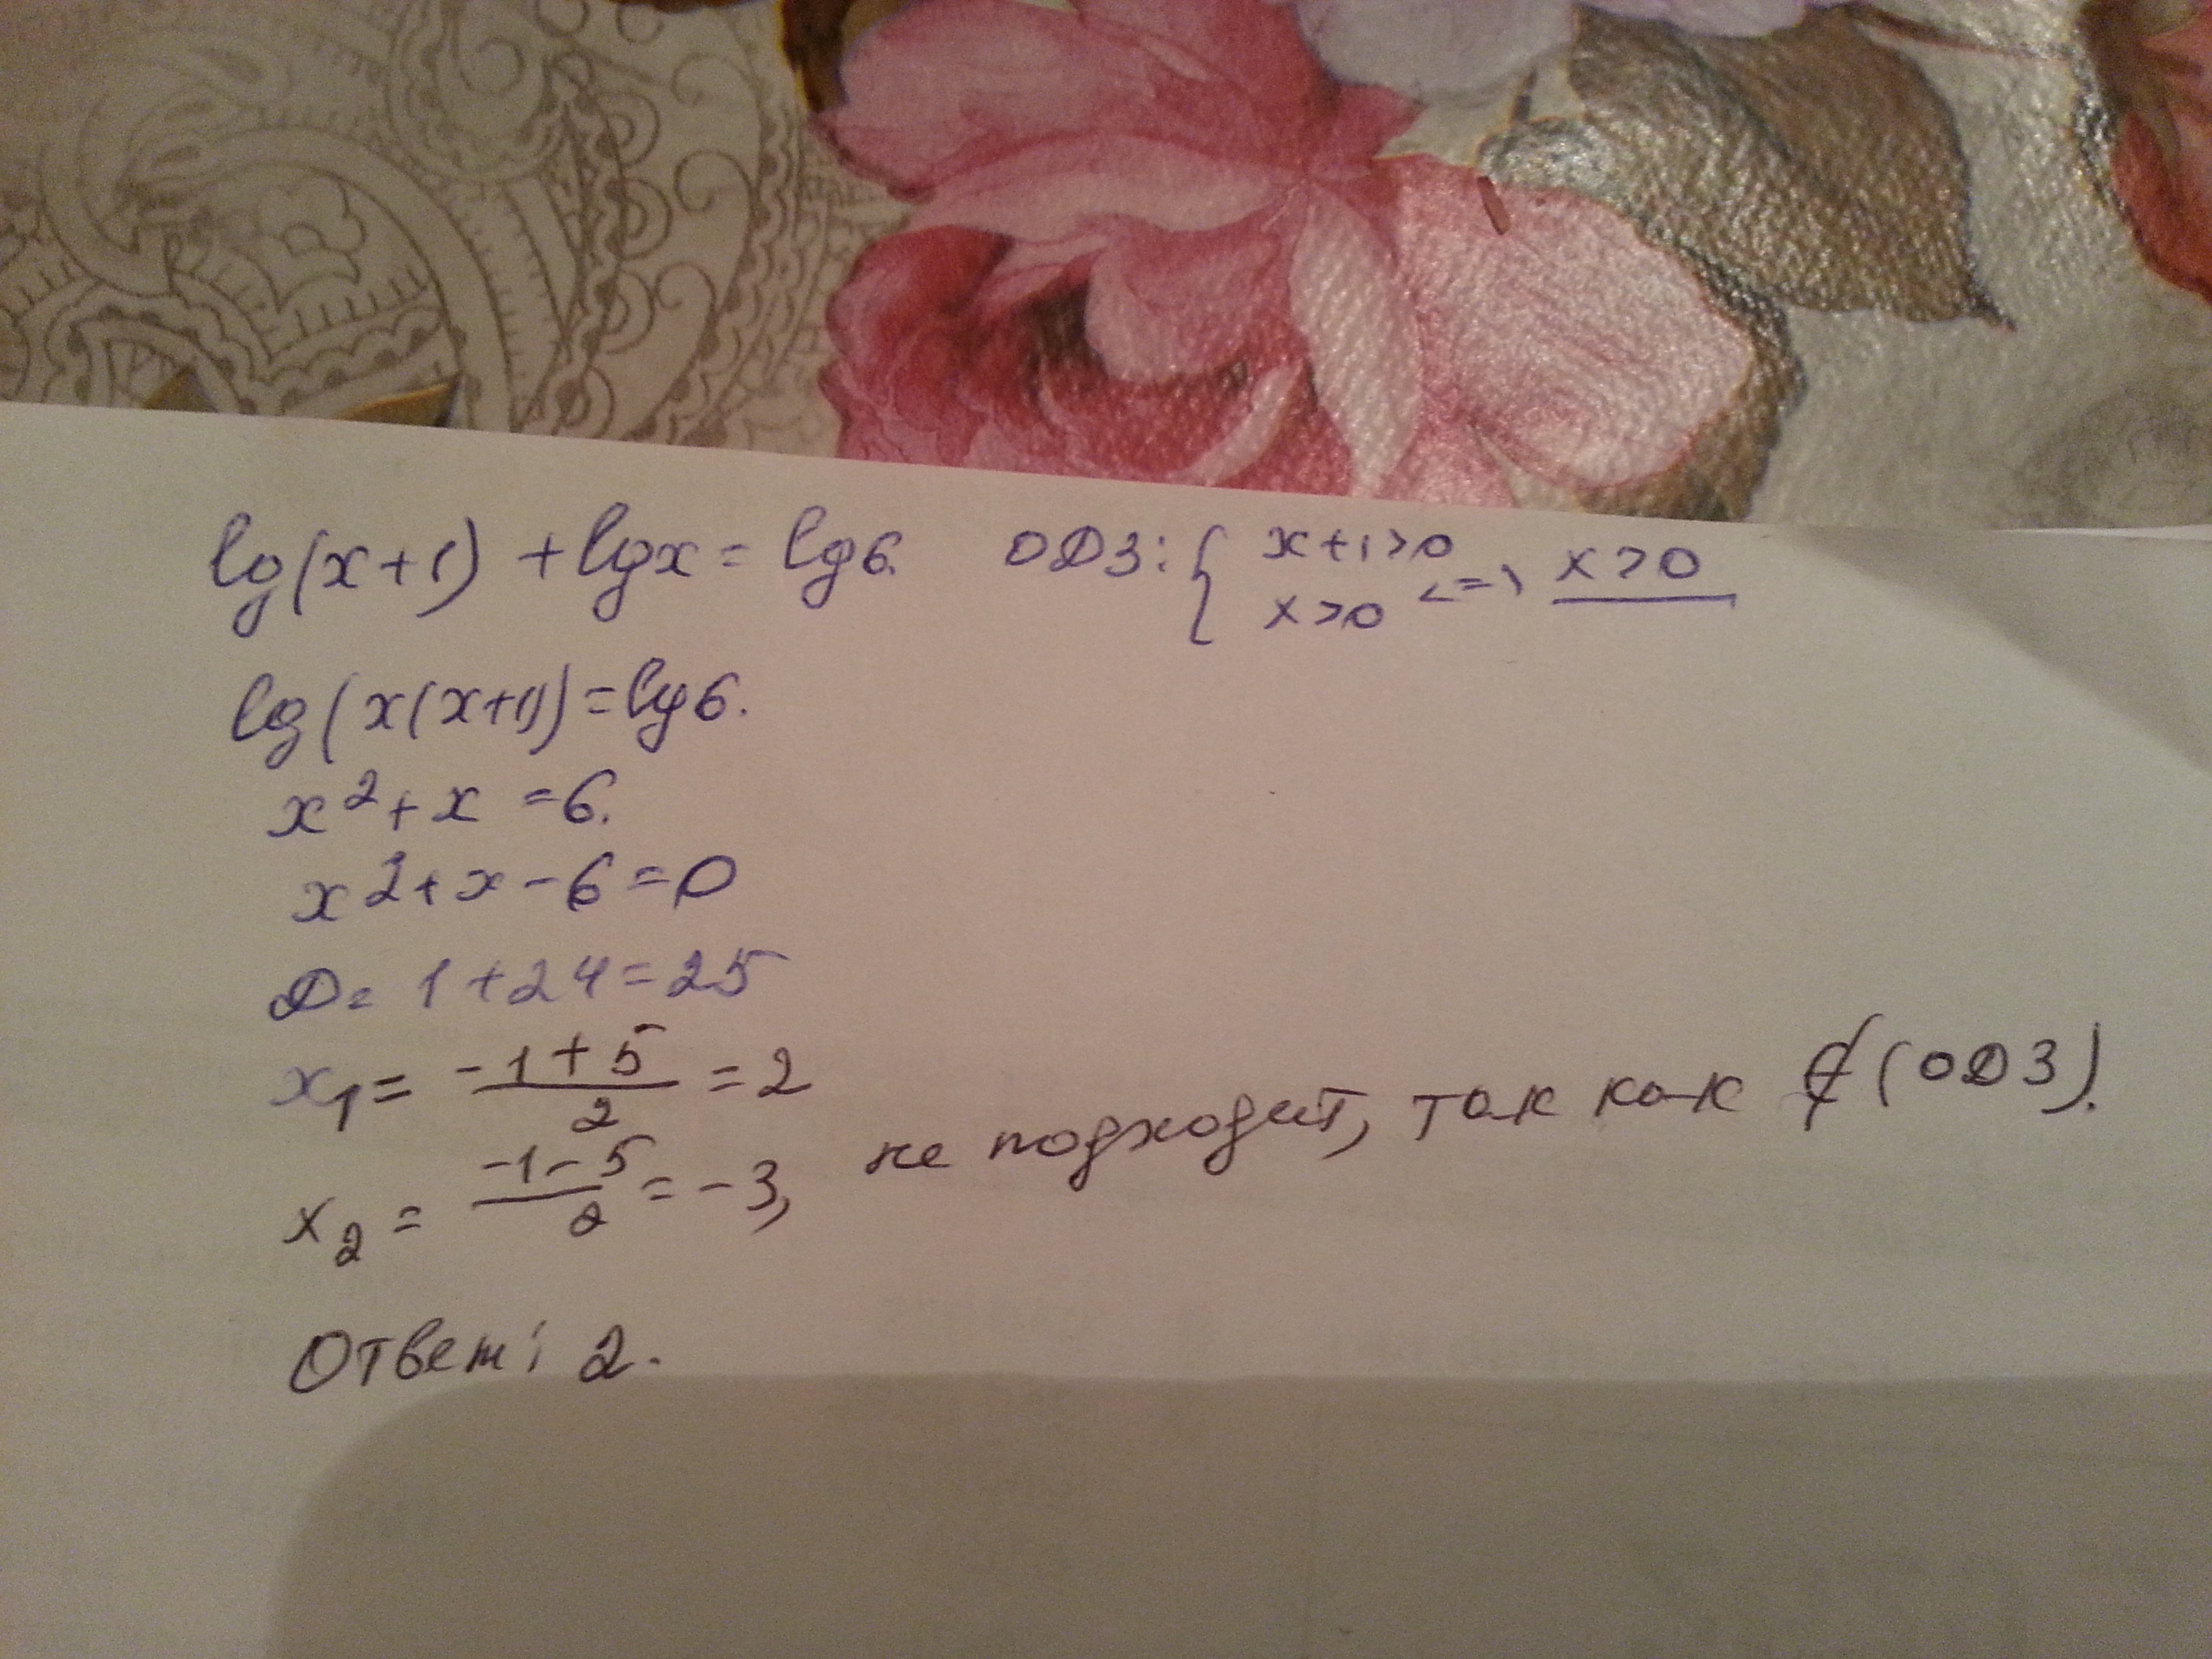 lg(x+1) + lgx = lg6. ОДЗ: { x+1>0 x>0 <=> x>0
lg(x(x+1)) = lg6.
x²+x = 6.
x²+x-6=0
D= 1+24=25
x₁= (-1+5)/2 = 2
x₂ = (-1-5)/2 = -3, не подходит, так как ∉ (ОДЗ).
Ответ: 2.